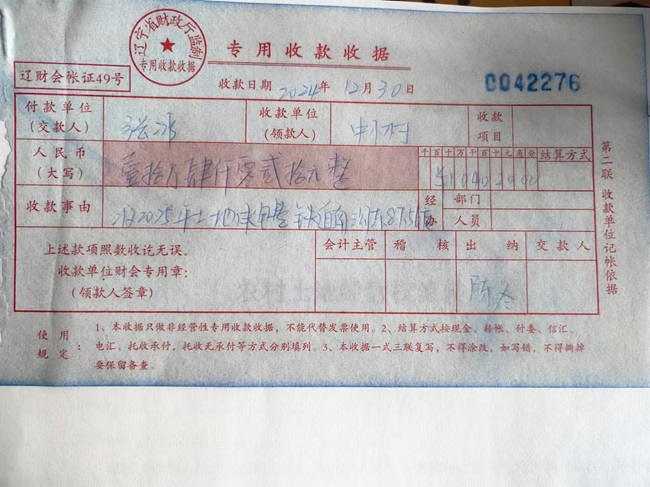 辽宁省财政厅监制
专用收款收据
专用收款收据
辽财会帐证49号
收款日期 2024年12月30日
0042276
付款单位
(交款人)
收款单位
(领款人)
中村
收款
项目
人民币
(大写)
壹拾万肆仟零贰拾元整
千百十万千百十元角分
结算方式
¥10402000
收款事由
2025年土地承包
经
办
部门
人员
上述款项照数收讫无误。
收款单位财会专用章:
(领款人签章)
会计主管
稽核
出纳
交款人
第二联 收款单位记帐依据
使用
规定:
1、本收据只做非经营性专用收款收据,不能代替发票使用。2、结算方式按现金、转帐、付委、信汇、
电汇、托收承付、托收无承付等方式分别填列。3、本收据一式三联复写,不得涂改,如写错,不得撕掉
要保留备查。